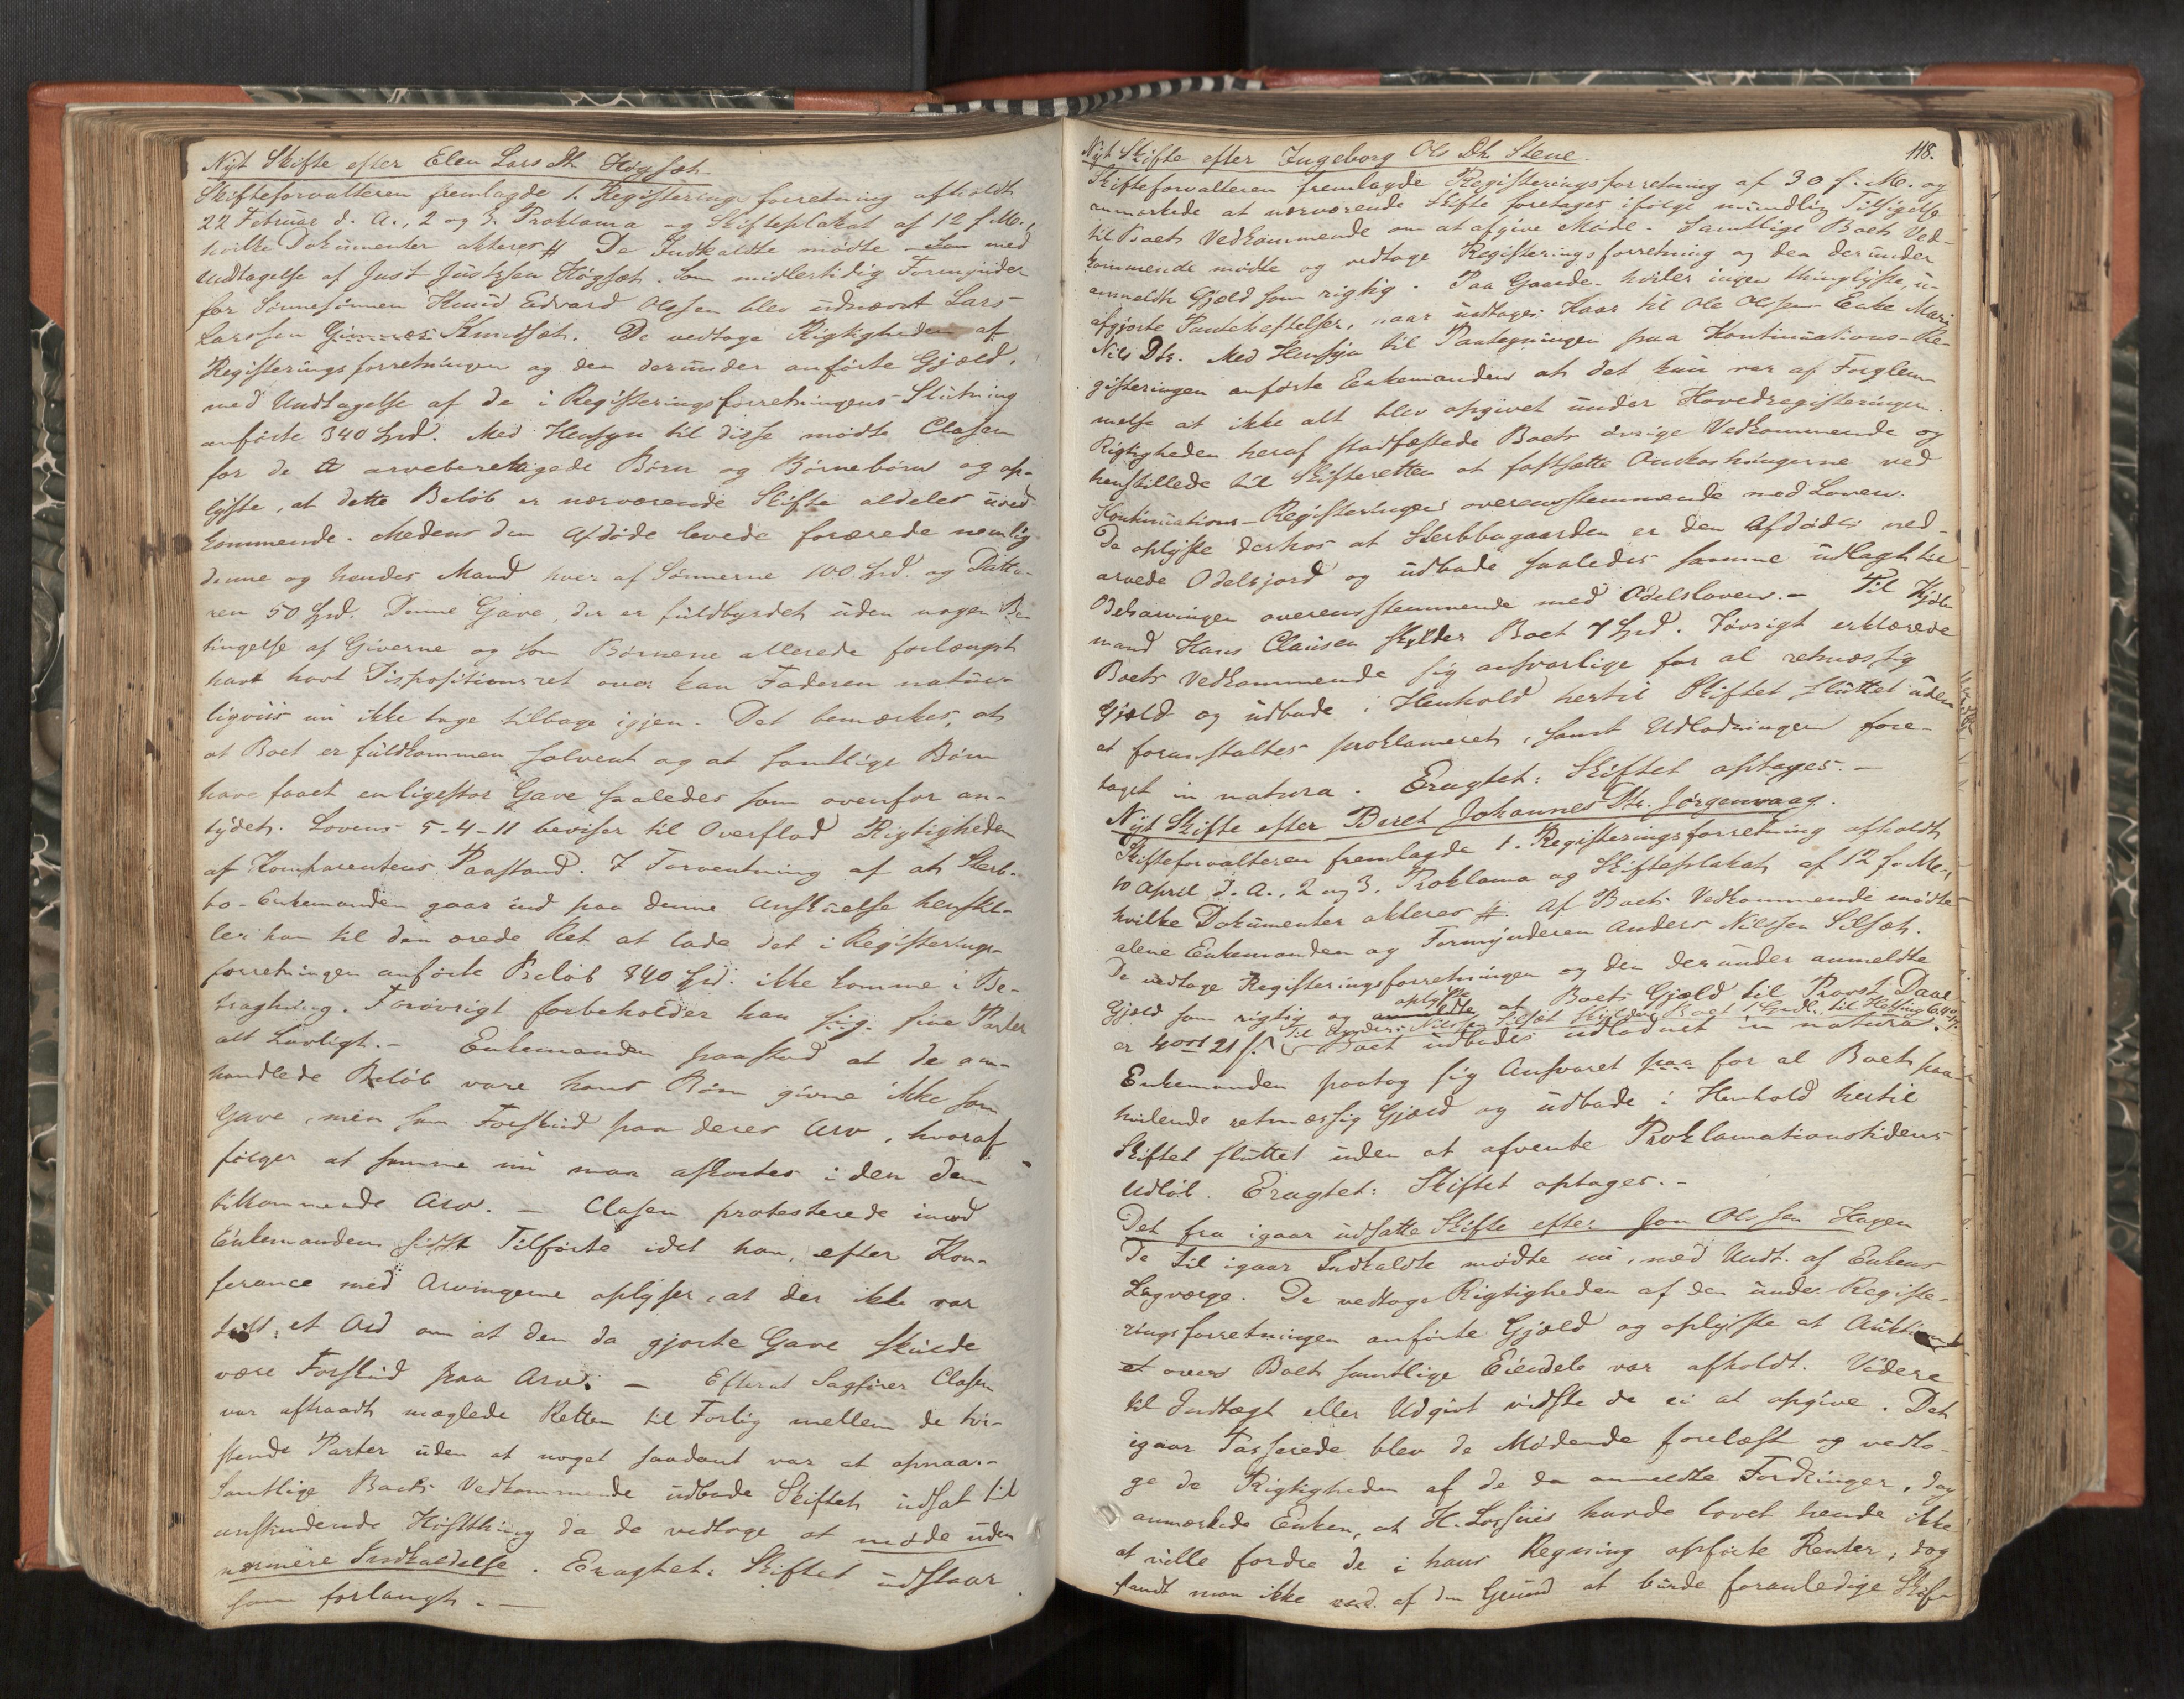 Nyt Skifte efter Elen Lars Dtr Høgset.
Skifteforvalteren fremlagde 1. Registerings forretning afholdt
22 Februar d. A., 2 og 3. Proklama og Skifteplakat af 12 f. M.,
hvilke Dokumenter akteres #. De Indkaldte mødte – med
Undtagelse af Just Justsen Høgset. Som midlertidig Formynder
for Sønnesønnen Knud Edvard Olsen blev udnævnt Lars
Larssen Knudset. De vedtoge Rigtigheden af
Registeringsforretningen og den derunder anførte Gjæld,
med Undtagelse af de i Registeringsforretningens Slutning
anførte 340 Spd. Med Hensyn til disse mødte Clasen
for de arveberettigede Børn og Børnebørn og op-
lyste, at dette Beløb er nærværende Skifte aldeles uved-
kommende. Medens den Afdøde levede forærede nemlig
denne og hendes Mand hver af Sønnerne 100 Spd. og Datte-
ren 50 Spd. Denne Gave, der er fuldbyrdet uden nogen Be-
tingelse af Giverne og som Børnene allerede forlængst
have havt Dispositionsret over kan Faderen natur-
ligviis nu ikke tage tilbage igjen. Det bemærkes, at
at Boet er fuldkommen solvent og at samtlige Børn
have faaet en ligestor Gave saaledes som ovenfor an-
tydet. Lovens 5-4-11 beviser til Overflod Rigtigheden
af Komparentens Paastand. I Forventning af at Sterb-
bo-Enkemanden gaar ind paa denne Anskuelse henstil-
ler han til den ærede Ret at lade det i Registerings-
forretningen anførte Beløb 340 Spd. ikke komme i Be-
tragtning. Forøvrigt forbeholder han sig sine Parter
alt Lovligt. – Enkemanden paastod at de om-
handlede Beløb vare hans Børn givne ikke som
Gave, men som Forskud paa deres Arv, hvoraf
følger at samme nu maa afkortes i den dem
tilkommende Arv. – Clasen protesterede imod
Enkemandens sidst Tilførte idet han, efter Kon-
ferance med Arvingerne oplyser, at der ikke var
talt et Ord om at den da gjorte Gave skulde
være Forskud paa Arv. – Efterat Sagfører Clasen
var aftraadt mæglede Retten til Forlig mellem de tvi-
stende Parter uden at noget saadant var at opnaae. –
Samtlige Boets Vedkommende udbade Skiftet udsat til
anstundende Høstthing da de vedtoge at møde uden
nærmere Indkaldelse. Eragtet: Skiftet udstaar
som forlangt. –
118.
Nyt Skifte efter Ingeborg Ols Dtr. Stene.
Skifteforvalteren fremlagde Registeringsforretning af 30 f. M. og
anmærkede at nærværende Skifte foretages ifølge mundlig Tilsigelse
til Boets Vedkommende om at afgive Møde. Samtlige Boets Ved-
kommende mødte og vedtoge Registeringsforretning og den derunder
anmeldte Gjæld som rigtig. Paa Gaarden hviler ingen thinglyste, u-
afgjorte Pantehæftelser, naar undtages Kaar til Ole Olsens Enke Mari
Nils Dtr. Med Hensyn til Paategningen paa Kontinuations-Re-
gisteringen anførte Enkemanden at det kun var af Forglem-
melse at ikke alt blev opgivet under Hovedregisteringen.
Rigtigheden heraf stadfæstede Boets øvrige Vedkommende og
henstillede til Skifteretten at fastsætte Omkostningerne ved
Kontinuations-Registeringen overensstemmende med Loven.
De oplyste derhos at Sterbbogaarden er den Afdødes ned-
arvede Odelsjord og udbade saaledes samme udlagt til
Odelsarvingen overensstemmende med Odelsloven. – Til Kjøb-
mand Hans Clausen skylder Boet 7 Spd. Iøvrigt erklærede
Boets Vedkommende sig ansvarlige for al retmæssig
Gjæld og udbade i Henhold hertil Skiftet sluttet uden
at foranstaltes proklameret, samt Udlodningen fore-
taget in natura. Eragtet: Skiftet optages. –
Nyt Skifte efter Beret Johannes Dtr. Jørgenvaag.
Skifteforvalteren fremlagde 1. Registeringsforretning afholdt
10 April d. A., 2 og 3. Proklama og Skifteplakat af 12 f. M.,
hvilke Dokumenter akteres #. Af Boets Vedkommende mødte
alene Enkemanden og Formynderen Anders Nilssen Silset.
De vedtoge Registeringsforretningen og den derunder anmeldte
Gjæld som rigtig og oplyste at Boets Gjæld til Provst Daae
er 4 ort 21 s. Til Anders Nilssen Silset skylder Boet
Boet udbades udloddet in natura.
Enkemanden paatog sig Ansvaret for al Boets paa-
hvilende retmæssig Gjæld og udbade i Henhold hertil
Skiftet sluttet uden at afvente Proklamationstidens
Udløb. Eragtet: Skiftet optages. –
Det fra igaar udsatte Skifte efter Jon Olssen Hagen
De til igaar Indkaldte mødte nu, med Undt. af Enkens
Lagværge. De vedtoge Rigtigheden af den under Registe-
ringsforretningen anførte Gjæld og oplyste at Auktion
over Boets samtlige Eiendele var afholdt. Videre
til Indtægt eller Udgivt vidste de ei at opgive. Det
igaar Passerede blev de Mødende forelæst og vedto-
ge de Rigtigheden af de da anmeldte Fordringer, dog
anmærkede Enken, at H. Lossius havde lovet hende ikke
at ville fordre de i hans Regning opførte Renter, dog
fandt man ikke af den Grund at burde foranledige Skif-